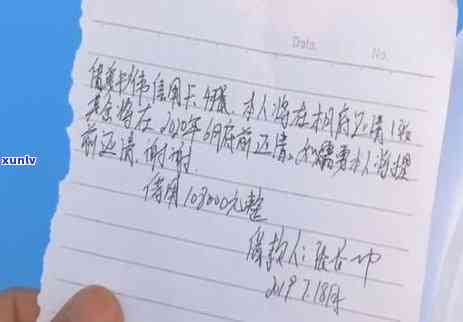 Data. No.
借 伟信用卡 本人将在相府还清1张
其余将在2020年6月府前还清。如需要本人将提
前还清.谢谢.
借用103000元整
借款人:
2019 7.18号
xunlv